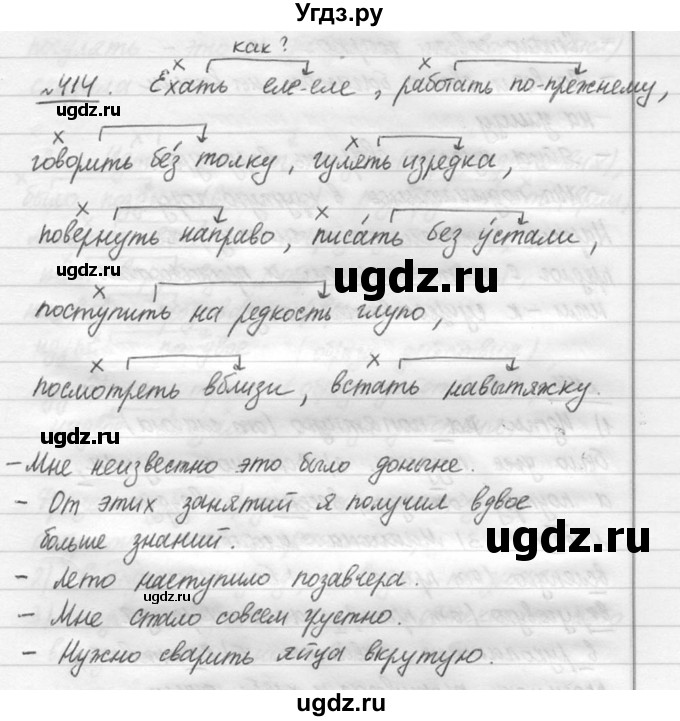 Угдз.ру
как?
№414. Ехать еле-еле, работать по-прежнему,
ugdz.ru
говорить без толку, гулять изредка,
повернуть направо, писать без устали,
ugdz.ru
поступить на редкость глупо,
посмотреть вблизи, встать навытяжку.
ugdz.ru
- Мне неизвестно это было доныне.
- От этих занятий я получил вдвое
ugdz.ru
больше знаний.
- Лето наступило позавчера.
ugdz.ru
- Мне стало совсем грустно.
- Нужно сварить яйца вкрутую.
ugdz.ru
ugdz.ru